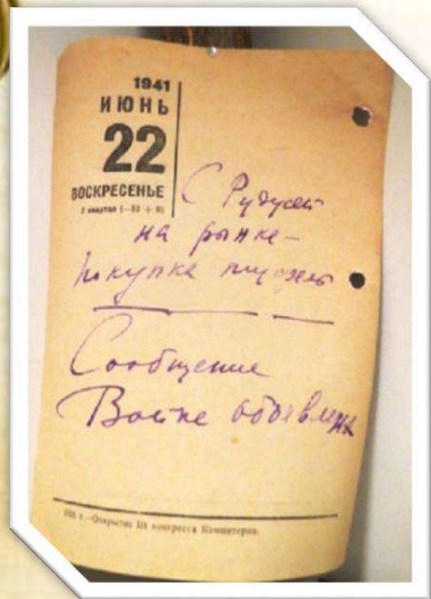 1941
ИЮНЬ
22
ВОСКРЕСЕНЬЕ
С
на рынке –
покупка
Сообщение
Война объявлена
г. — Открытие III конгресса Коминтерна.